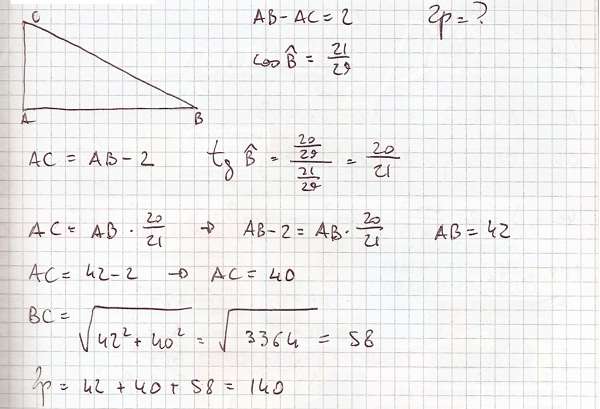 AB - AC = 2   2p = ?
cos B̂ = 21/29
C
A   B
AC = AB - 2   tg B̂ = (20/29)/(21/29) = 20/21
AC = AB · 20/21 → AB - 2 = AB · 20/21   AB = 42
AC = 42 - 2 → AC = 40
BC = √(42² + 40²) = √3364 = 58
2p = 42 + 40 + 58 = 140